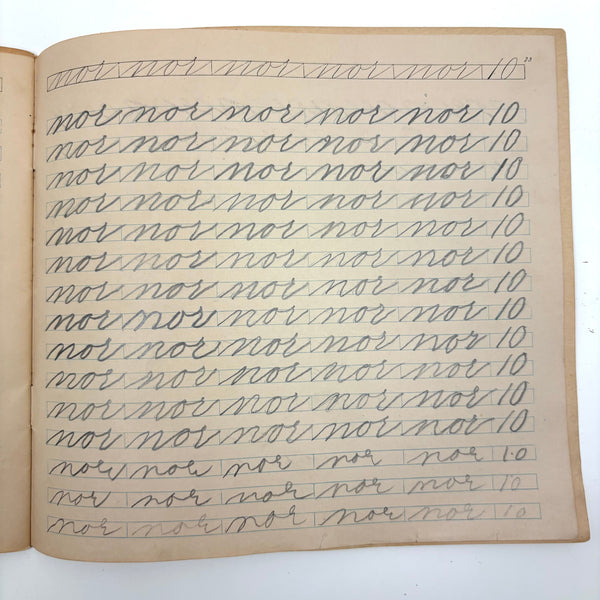 nor nor nor nor nor 10
nor nor nor nor nor 10
nor nor nor nor nor 10
nor nor nor nor nor 10
nor nor nor nor nor 10
nor nor nor nor nor 10
nor nor nor nor nor 10
nor nor nor nor nor 10
nor nor nor nor nor 10
nor nor nor nor nor 10
nor nor nor nor nor 10
nor nor nor nor nor 10
nor nor nor nor nor 10
nor nor nor nor nor 1.0
nor nor nor nor nor 10
nor nor nor nor nor 10